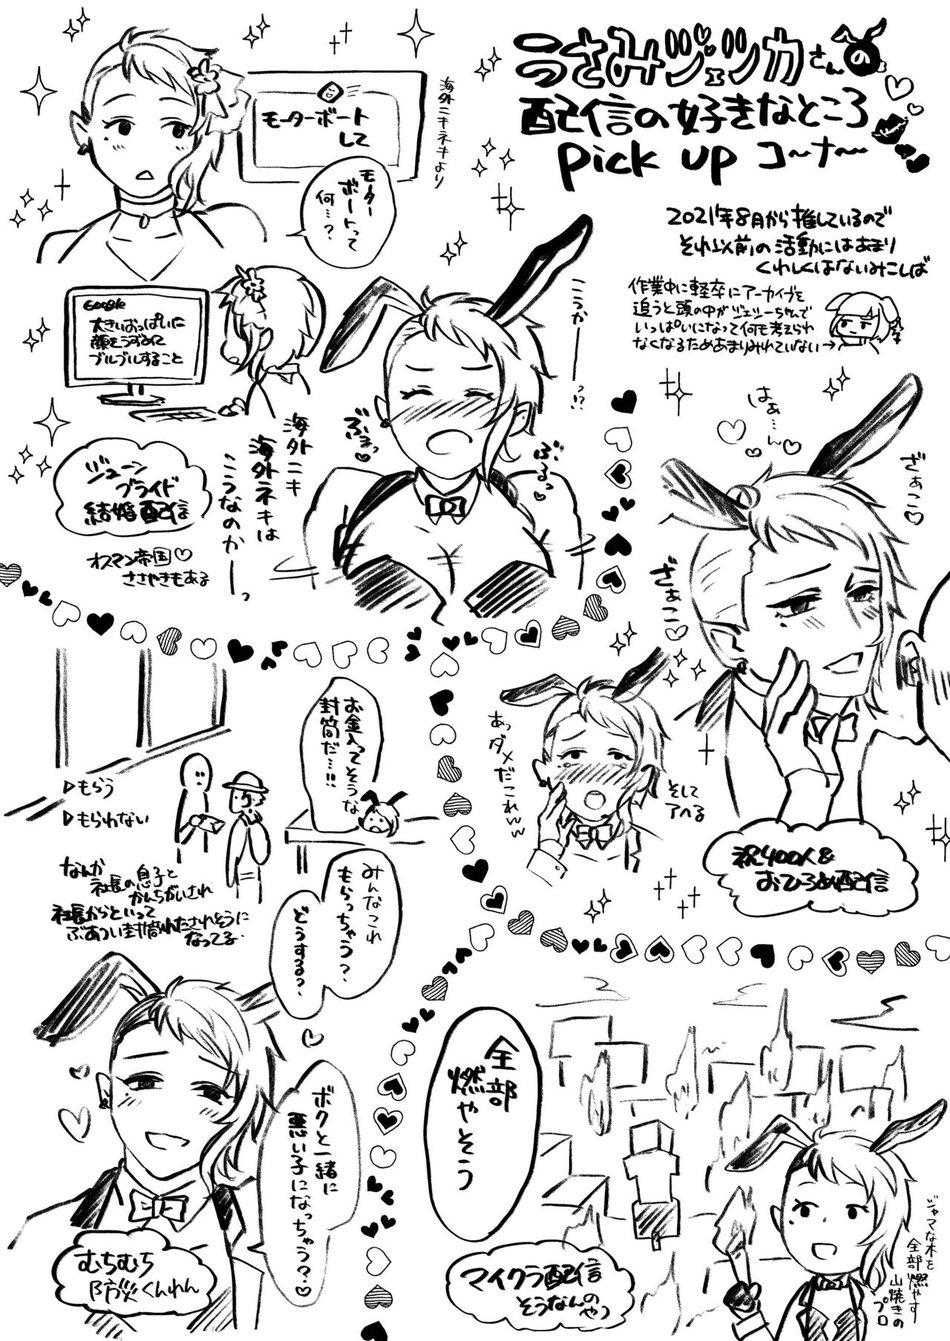 うさみジェツカさんの
配信の好きなところ
pick up コ〜ナ〜
2021年8月から推しているので
それ以前の活動にはあまり
くわしくはないみこしば
作業中に軽率にアーカイブを
追うと頭の中がジェツーちゃんで
いっぱいになって何も考えられ
なくなるためあまりみれていない→
海外ニキネキより
モーターボート
して
モーター
ボートって
何…?
Google
大きいおっぱいに
顔をうずめて
ブルブルすること
こうか———!?
ぶるっ
海外ニキ
海外ネキは
こうなのか——っ
ジューン
ブライド
結婚配信
オスマン帝国♡
ささやきもある
はぁ…ん♡
ざぁこ♡
ざぁこ♡
あっ
ダメだこれww
そして
アへる
祝400人&
おひろめ配信
▷もらう
▷もらわない
お金入ってそうな
封筒だ…!!
なんか
社長の息子と
かんちがいされ
社長からといって
ぶあつい封筒わたされそうに
なってる
みんなこれ
もらっちゃう?
どうする?
ボクと一緒に
悪い子になっちゃう?♡
むちむち
防災くんれん
全部
燃やそう
マイクラ配信
そうなんのやつ
ジャマな木を
全部燃やす
山焼きの
プロ